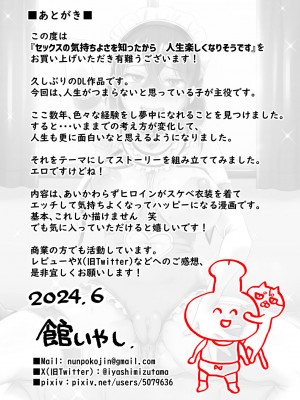 ■あとがき■
この度は
『セックスの気持ちよさを知ったから 人生楽しくなりそうです』を
お買い上げいただき有難うございます！
久しぶりのDL作品です。
今回は、人生がつまらないと思っている子が主役です。
ここ数年、色々な経験をし夢中になれることを見つけました。
すると・・・いままでの考え方が変化して、
人生も更に面白いなと思えるようになりました。
それをテーマにしてストーリーを組み立ててみました。
エロですけどね！
内容は、あいかわらずヒロインがスケベ衣装を着て
エッチして気持ちよくなってハッピーになる漫画です。
基本、これしか描けません 笑
でも気に入っていただけると嬉しいです！
商業の方でも活動しています。
レビューやX(旧Twitter)などへのご感想、
是非宜しくお願いします！
2024.6
館いやし.
■Mail: nunpokojin@gmail.com
■X(旧Twitter)：@iyashimizutama
■pixiv：pixiv.net/users/5079636